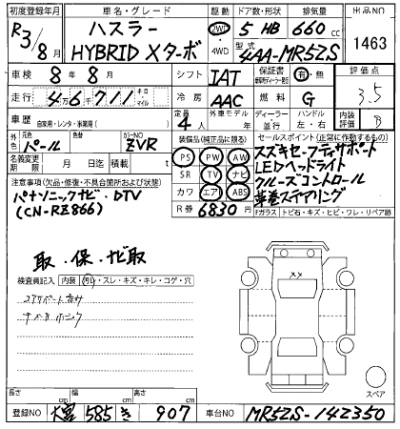 初度登録年月 車名・グレード 駆動 ドア数・形状 排気量 出品NO
R3/8月 ハスラー HYBRID Xターボ 2WD 4WD 5 HB 660cc 1463
型式 4AA-MR52S
車検 8年8月 シフト IAT 保証書 有・無 評価点 3.5
走行 46711 キロ・マイル 冷房 AAC 燃料 G 内装評価 B
車歴 自家用・レンタ・事業用 定員 4人 外車モデル年 年 ディーラー・並行 ハンドル 左・右
外色 元色 パール カラーNO ZVR
装備品(純正品に限る) セールスポイント(正常に作動するもの)
名義変更期限 月 日迄 積載 t
PS PW AW
SR TV ナビ
カワ エア ABS
スズキセーフティサポート
LEDヘッドライト
クルーズコントロール
革巻ステアリング
注意事項(欠品・修復・不具合箇所および状態)
パナソニックナビ・DTV
(CN-RZ866)
R券 6830円
Fガラス トビ石・キズ・ヒビ・ワレ・リペア跡
取・保・ナビ取
検査員記入 内装 汚れ・スレ・キズ・キレ・コゲ・穴
スペア
長さ cm 幅 cm 高さ cm
登録NO 大宮 585 き 907 車台NO MR52S-142350